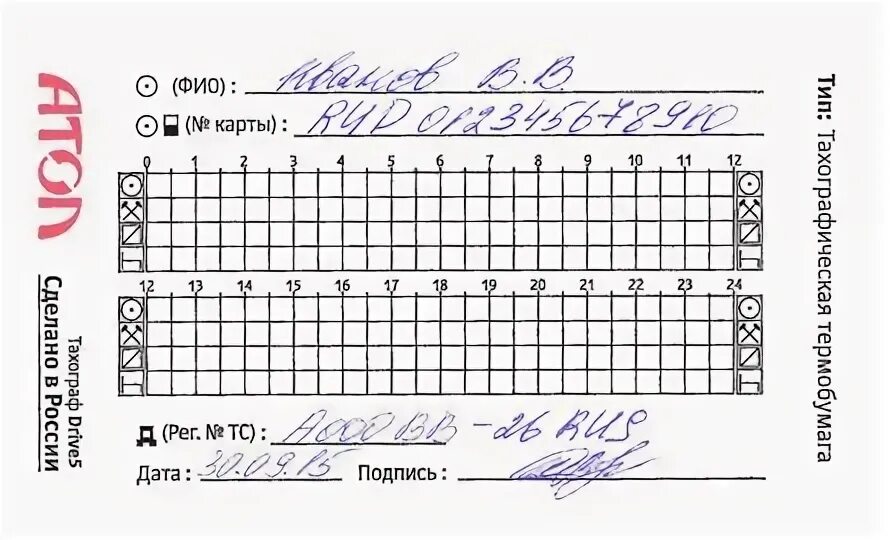 (ФИО): Иванов В.В.
(№ карты): RUD 012345678910
0 1 2 3 4 5 6 7 8 9 10 11 12
12 13 14 15 16 17 18 19 20 21 22 23 24
Д (Рег. № ТС): А000ВВ-26 RUS
Дата: 30.09.15 Подпись:
АТОЛ
Сделано в России
Тахограф Drive5
Тип: Тахографическая термобумага